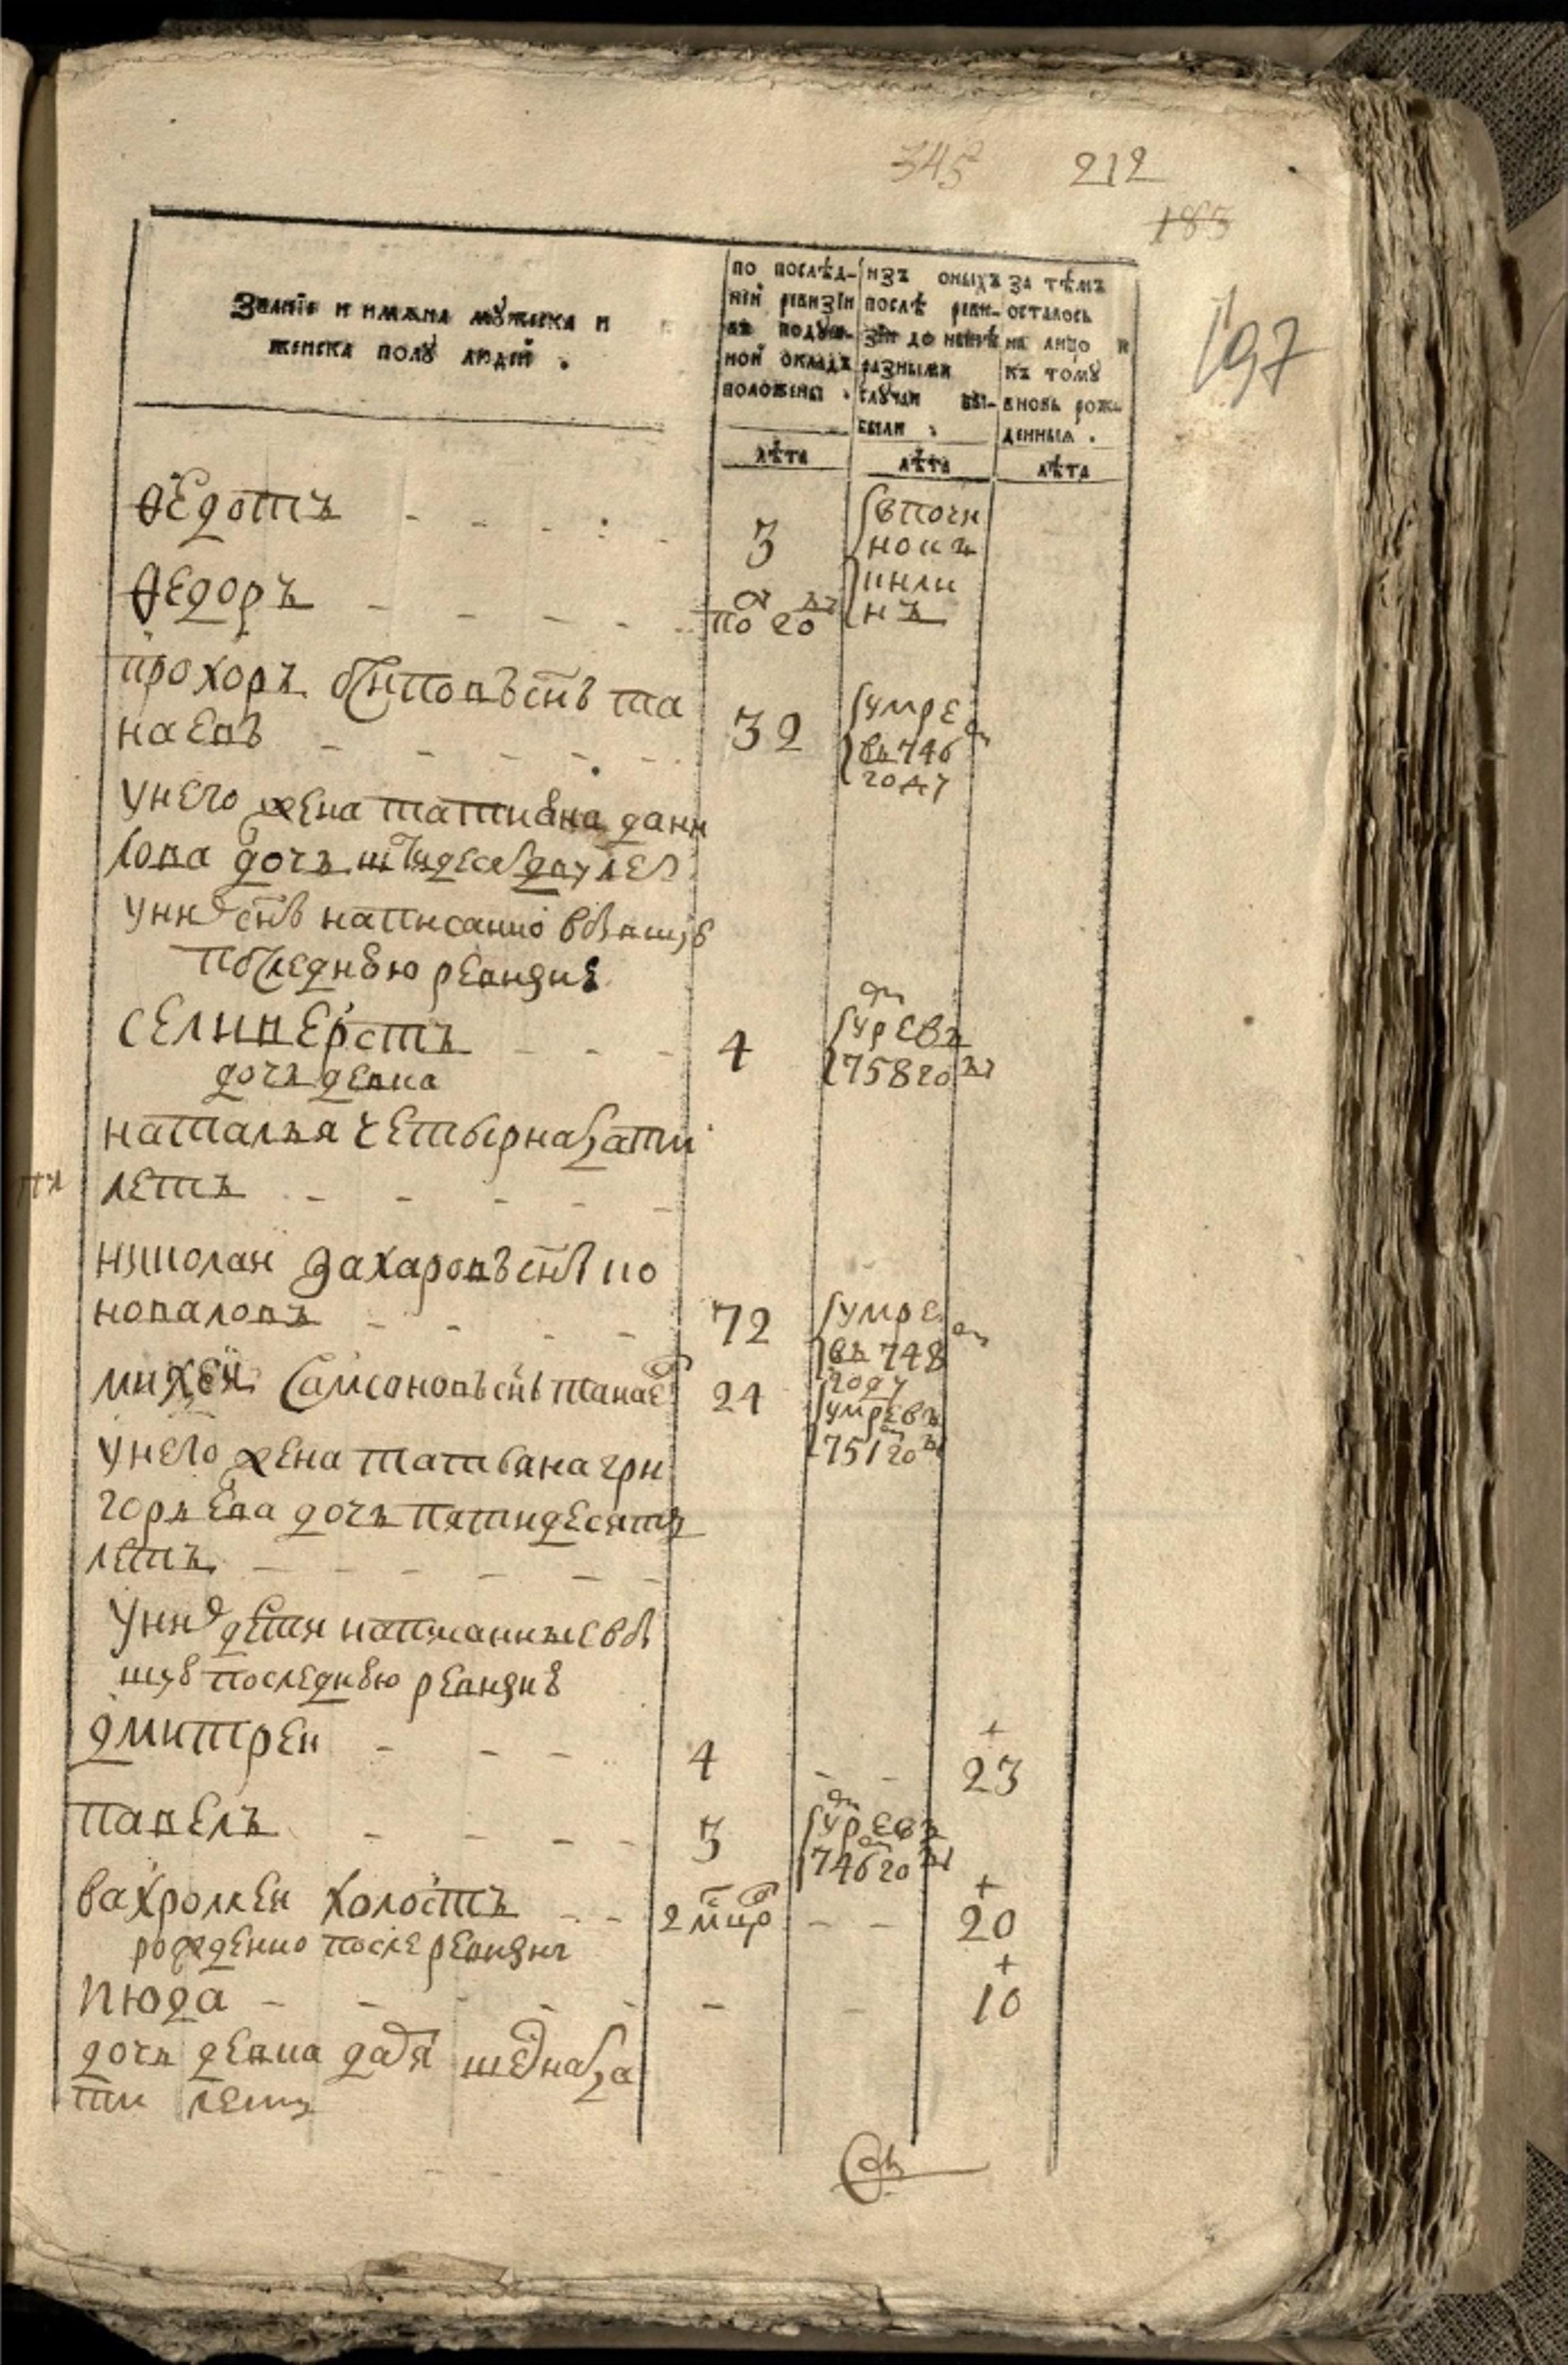 345 212
185
197
Званїе и имѧна мꙋжеска и
женска полꙋ людей .
по послѣд-
ней ревизїи
въ подꙋш-
ной окладъ
положены .
лѣта
изъ оныхъ
послѣ реви-
зїи до нынѣ
разными
слꙋчаи вы-
были .
лѣта
за тѣмъ
осталось
на лицо и
къ томꙋ
вновь рож-
денныя .
лѣта
Ѳедотъ
3
Ѳедоръ
по
прохоръ сынъ та
наевъ
32
умре
въ 746
году
у него жена татиана дани
лова дочь лет
у них сынъ написанно въ бывшую
последнюю ревизию
селиверстъ
4
умре въ
758 году
дочь девка
наталья четырнатцати
летъ
николаи захаровъ сынъ ко
новаловъ
72
умре
въ 748
году
михеи самсоновъ сынъ танаев
24
умре въ
751 году
у него жена татьяна гри
горьева дочь пятидесятъ
летъ
у них дети написанные въ быв
шую последнюю ревизию
дмитреи
4
+
23
павелъ
3
умре въ
746 году
вахромеи холостъ
2 мцо
+
20
рождённо после ревизии
июда
+
10
дочь девка дарья
ти летъ